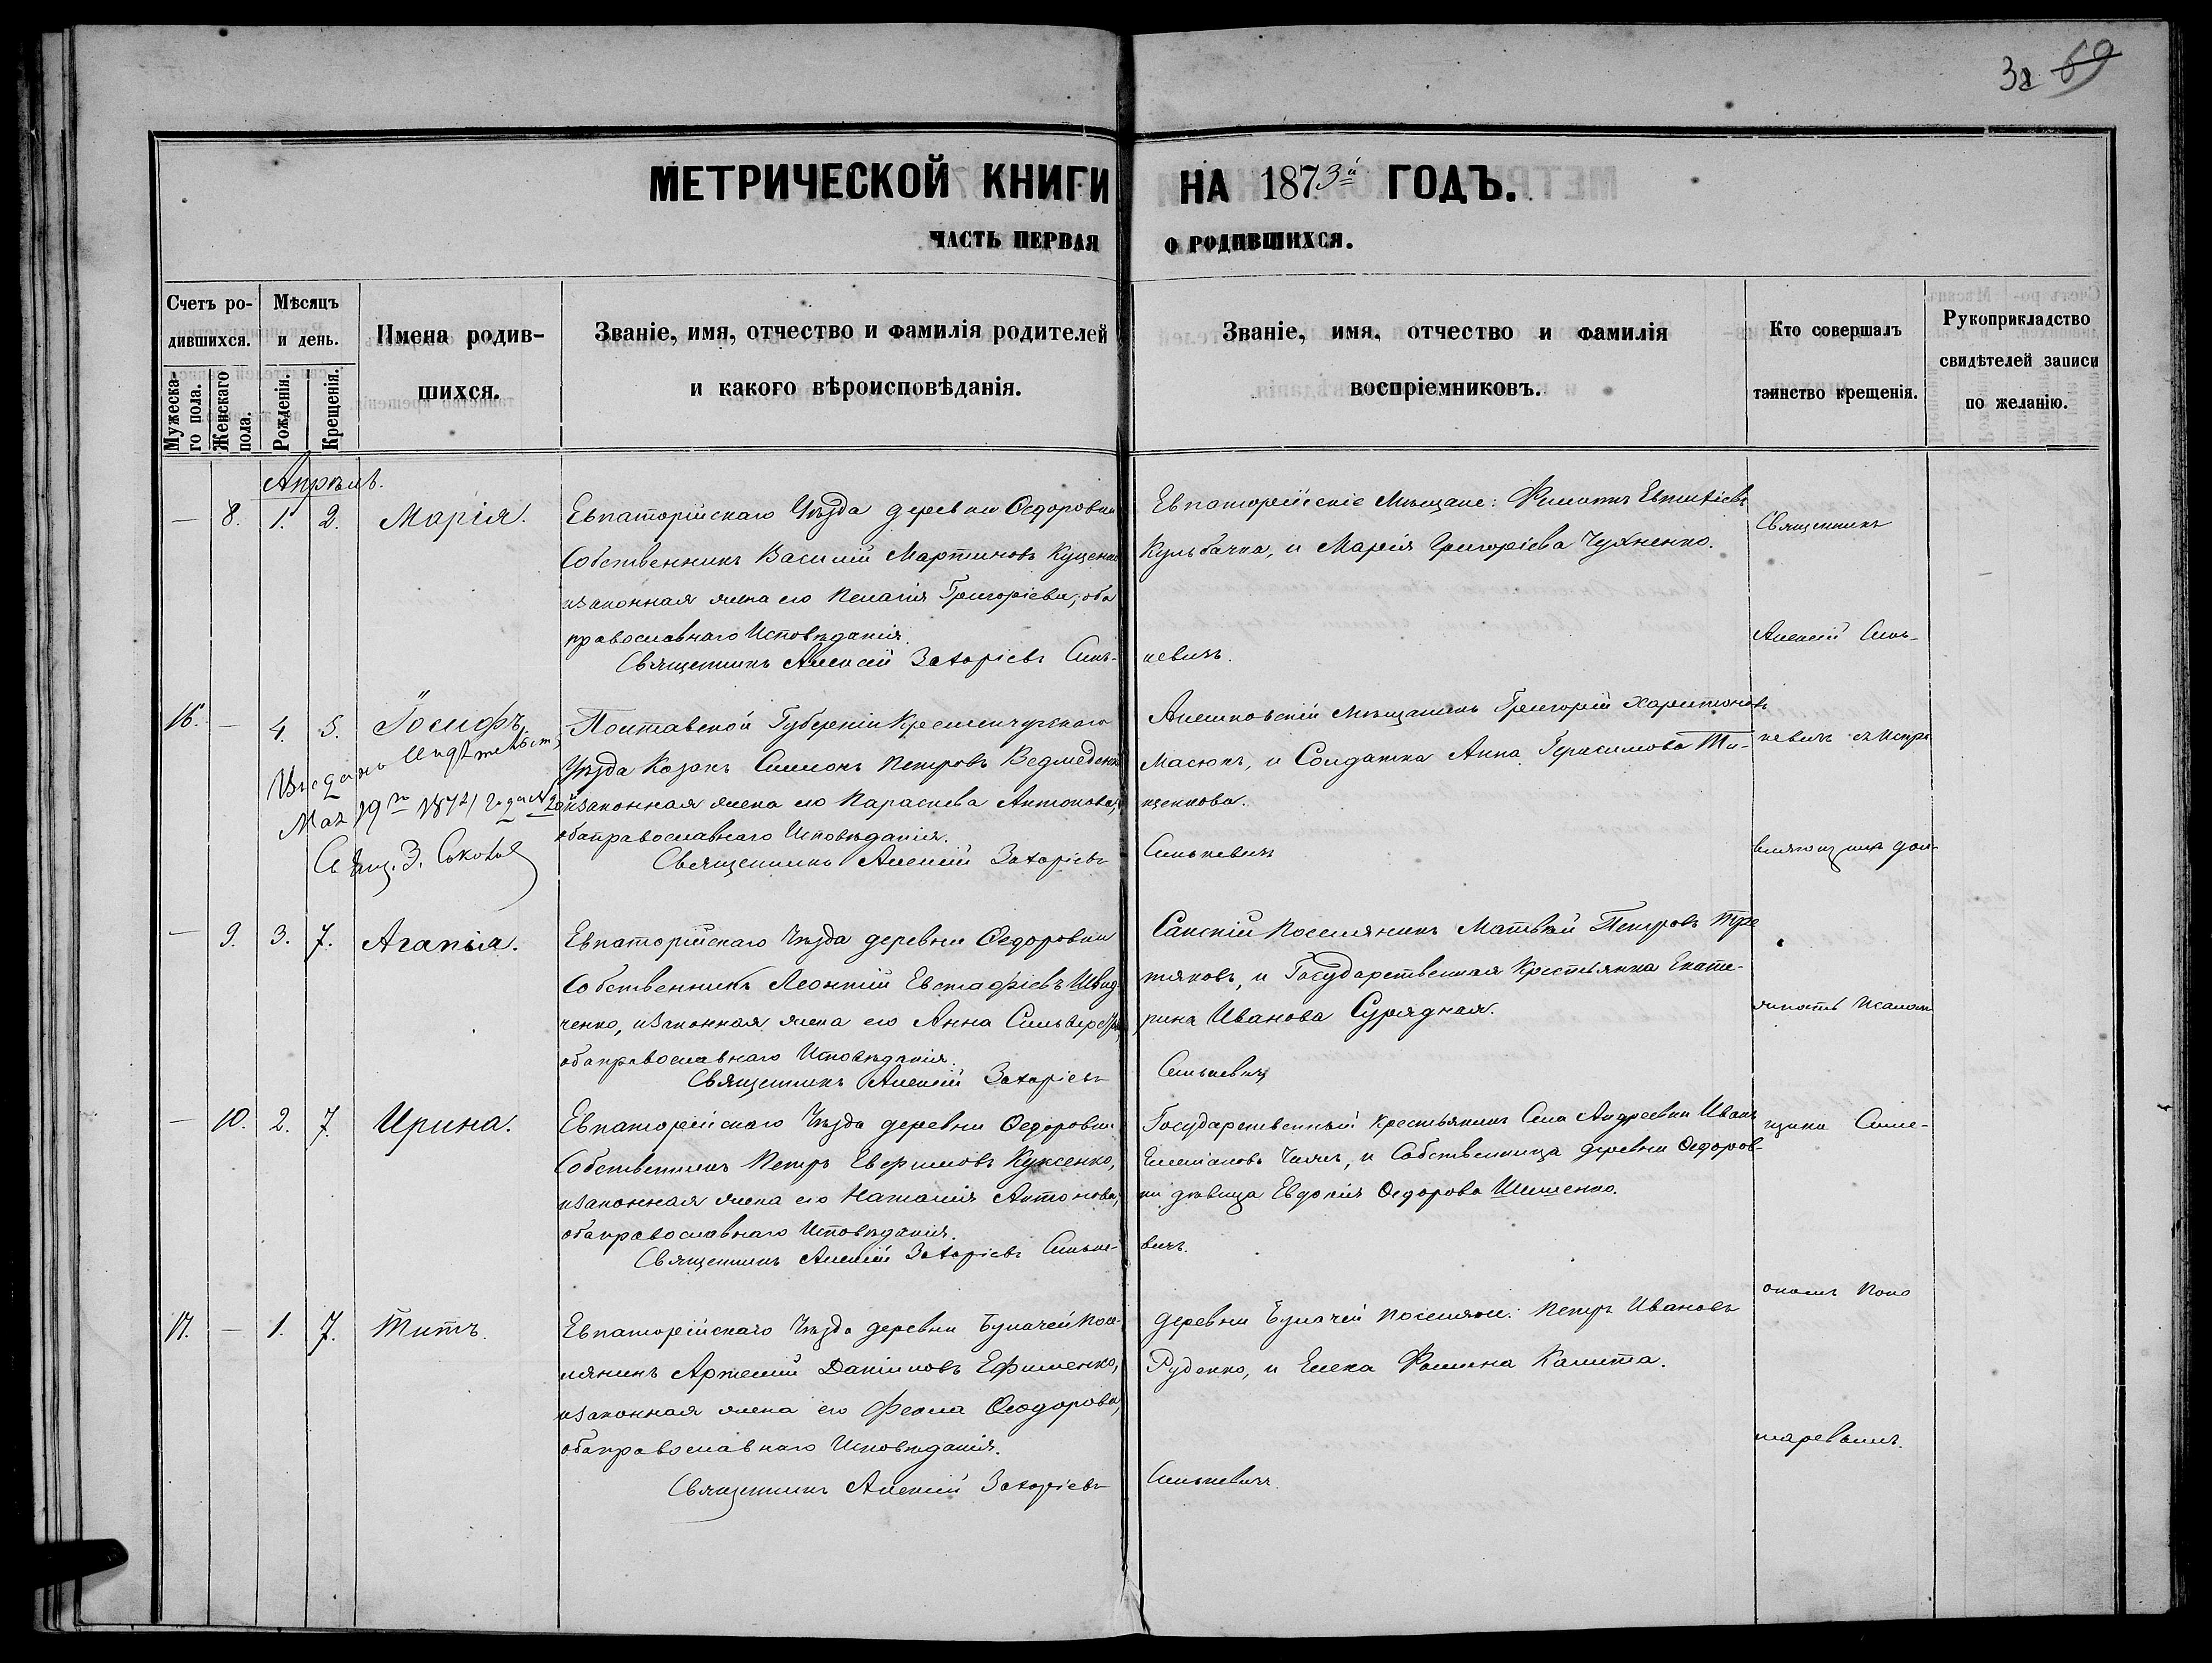 69
МЕТРИЧЕСКОЙ КНИГИ НА 1873й ГОДЪ.
ЧАСТЬ ПЕРВАЯ О РОДИВШИХСЯ.
Счетъ ро-
дившихся.
Мужеска-
го пола.
Женскаго
пола.
Мѣсяцъ
и день.
Рожденія.
Крещенія.
Имена родив-
шихся.
Званіе, имя, отчество и фамилія родителей
и какого вѣроисповѣданія.
Званіе, имя, отчество и фамилія
воспріемниковъ.
Кто совершалъ
таинство крещенія.
Рукоприкладство
свидѣтелей записи
по желанію.
Апрѣль.
— 8. 1. 2. Марія.
Евпаторійскаго Уѣзда деревни Ѳедоровки
Собственникъ Василій Мартиновъ Куценко
и законная жена его Пелагія Григоріева, оба
православнаго Исповѣданія.
Священникъ Алексій Захаріевъ Синь-
кевичъ.
Евпаторійскіе Мѣщане: Филиппъ
Кульбачка, и Марія Григоріева Чухненко.
Священникъ
Алексій Синь-
16. — 4. 5. Іосифъ.
Выдано свидѣтельст.
Мая 19го 1874 года № 20й
Свящ. З. Соколов
Полтавской Губерніи Кременчугскаго
Уѣзда Козакъ Симеонъ Петровъ Ведмеденко
и законная жена его Параскева Антонова,
оба православнаго Исповѣданія.
Священникъ Алексій Захаріевъ
Синькевичъ
Алешковскій Мѣщанинъ Григорій Харитоновъ
Масюкъ, и Солдатка Анна Герасимова Ти-
щенкова.
кевичъ съ испра
вляющимъ дол-
— 9. 3. 7. Агапія.
Евпаторійскаго Уѣзда деревни Ѳедоровки
Собственникъ Леонтій Евстафіевъ Швид
ченко, и законная жена его Анна
оба православнаго Исповѣданія.
Священникъ Алексій Захаріевъ
Синькевичъ
Сакскій Поселянинъ Матвѣй Петровъ Тре
тяковъ, и Государственная Крестьянка Екате-
рина Иванова Сурядная.
жность Псалом
— 10. 2. 7. Ирина.
Евпаторійскаго Уѣзда деревни Ѳедоровки
Собственникъ Петръ Евфимовъ Куксенко,
и законная жена его Наталія Антонова,
оба православнаго Исповѣданія.
Священникъ Алексій Захаріевъ Синьке-
вичъ.
Государственный Крестьянинъ Села Андреевки Иванъ
Емеліановъ Чалый, и Собственница деревни Ѳедоров-
ки дѣвица Евдокія Ѳедорова Шишенко.
щика Симе-
ономъ Поно
17. — 1. 7. Титъ.
Евпаторійскаго Уѣзда деревни Булачей Посе
лянинъ Артемій Даніиловъ Ефименко,
и законная жена его Фекла Ѳеодорова,
оба православнаго Исповѣданія.
Священникъ Алексій Захаріевъ
Синькевичъ.
деревни Булачей поселяне: Петръ Ивановъ
Руденко, и Елена Фомина Калита.
маревымъ.